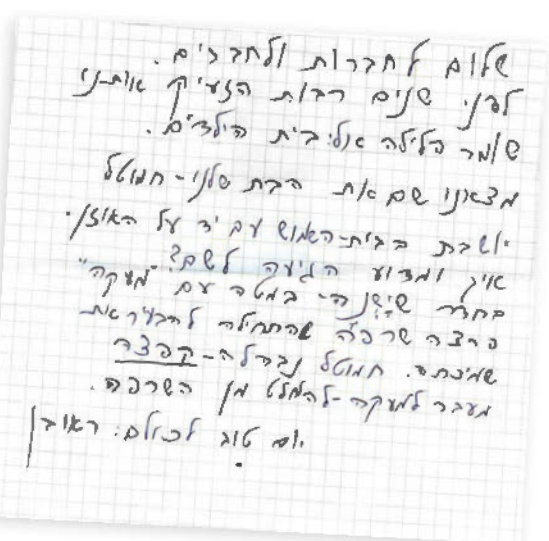 שלום לחברות ולחברים.
לפני שנים רבות הזעיק אות-נו
שומר הלילה אל: בית הילדים.
מצאנו שם את הבת שלנו - חמוטל
יושבת בבית-השמוש עם יד על האוזן.
איך ומדוע הגיעה לשם?
בחדר שישנה - במטה עם "מעקה"
פרצה שרפה שהתחילה להבעיר את
שמיכתה. חמוטל נבהלה - קפצה
מעבר למעקה - להמלט מן השרפה.
יום טוב לכולם: ראובן